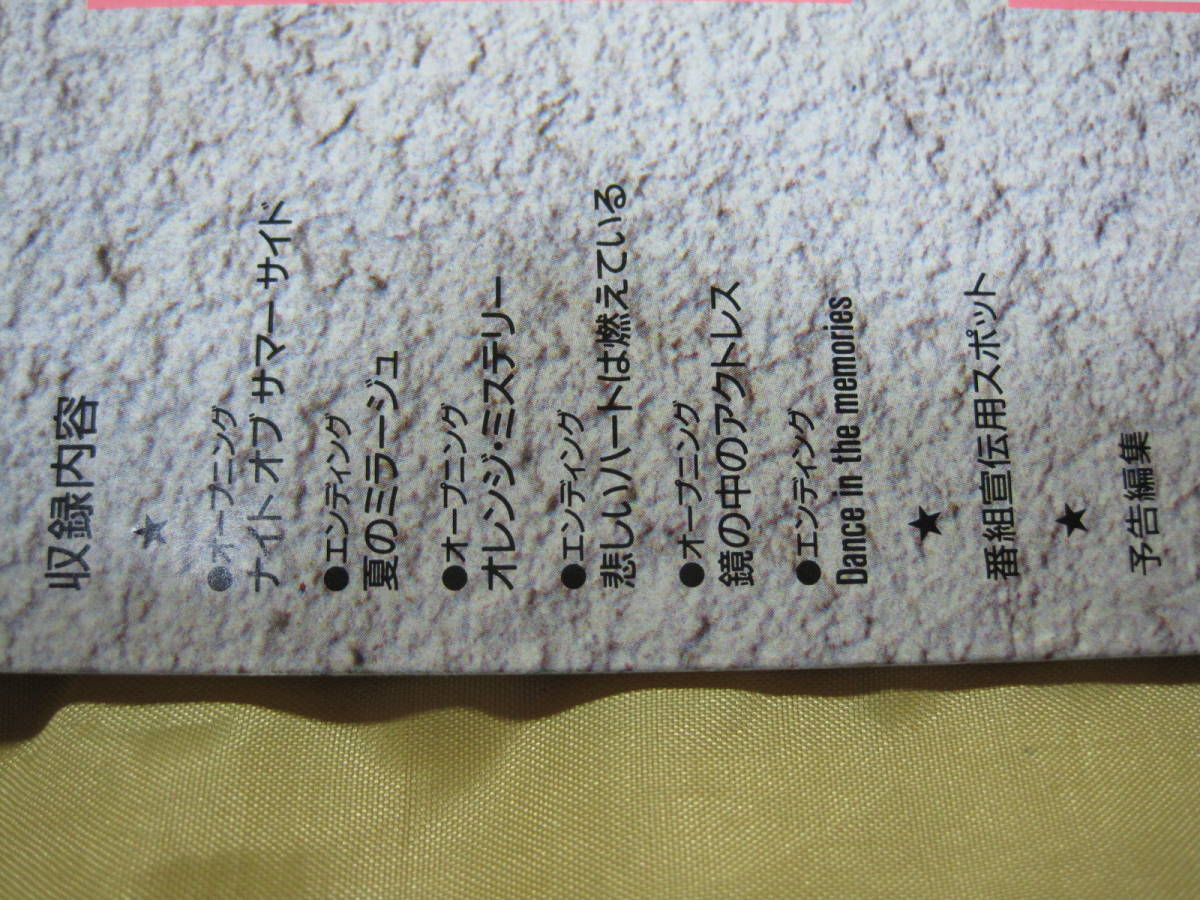 収録内容
★
●オープニング
ナイト オブ サマー サイド
●エンディング
夏のミラージュ
●オープニング
オレンジ・ミステリー
●エンディング
悲しいハートは燃えている
●オープニング
鏡の中のアクトレス
●エンディング
Dance in the memories
★
番組宣伝用スポット
★
予告編集